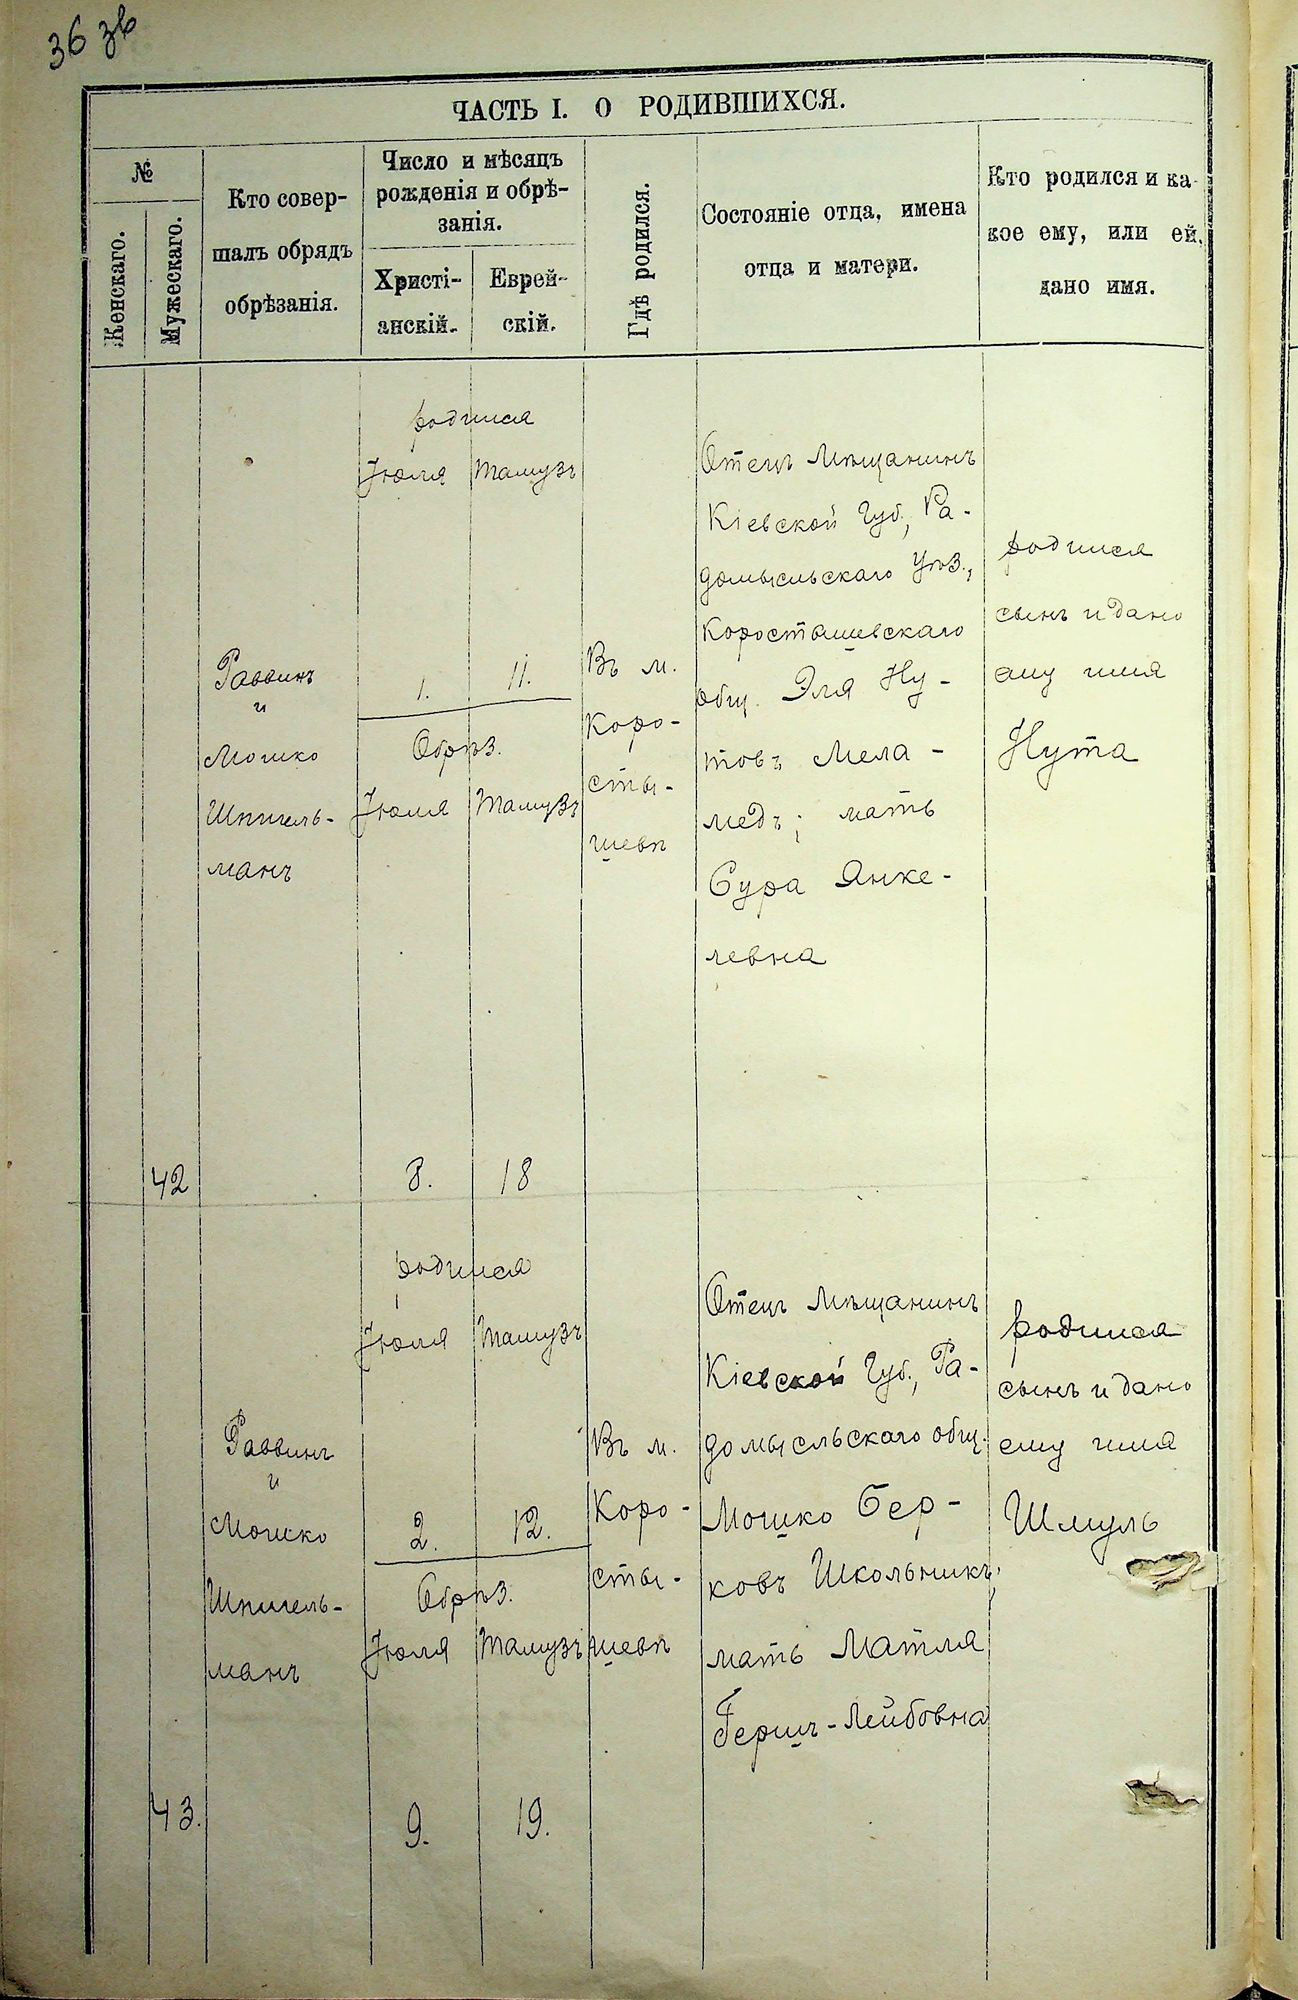 36 зв
ЧАСТЬ I. О РОДИВШИХСЯ.
№
Женскаго.
Мужескаго.
Кто совер-
шалъ обрядъ
обрѣзанія.
Число и мѣсяцъ
рожденія и обрѣ-
занія.
Христі-
анскій.
Еврей-
скій.
Гдѣ родился.
Состояніе отца, имена
отца и матери.
Кто родился и ка-
кое ему, или ей,
дано имя.
42
Раввинъ
и
Мошко
Шпигель-
манъ
родился
Іюля Тамузъ
1. 11.
Обрѣз.
Іюля Тамузъ
8. 18
Въ м.
Коро-
сты-
шевѣ
Отецъ Мѣщанинъ
Кіевской Губ., Ра-
домысльскаго Уѣз.,
Коростышевскаго
общ. Эля Ну-
товъ Мела-
медъ; мать
Сура Янке-
левна
родился
сынъ и дано
ему имя
Нута
43.
Раввинъ
и
Мошко
Шпигель-
манъ
родился
Іюля Тамузъ
2. 12.
Обрѣз.
Іюля Тамузъ
9. 19.
Въ м.
Коро-
сты-
шевѣ
Отецъ Мѣщанинъ
Кіевской Губ., Ра-
домысльскаго общ.
Мошко Бер-
ковъ Школьникъ;
мать Матля
Гершъ-Лейбовна
родился
сынъ и дано
ему имя
Шмуль